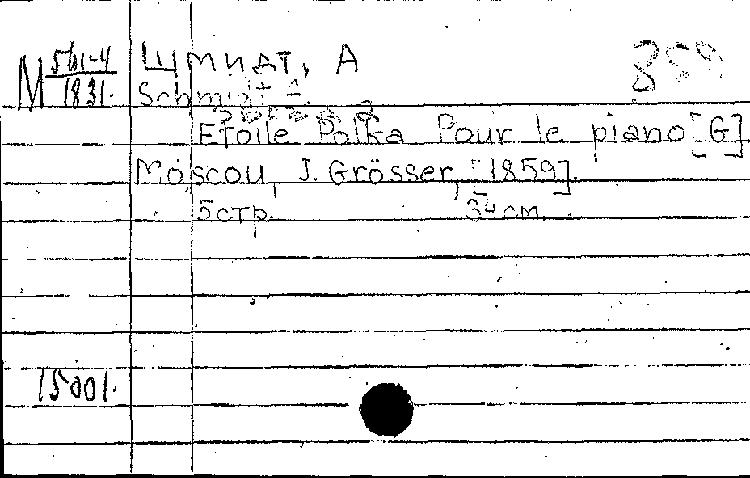 М 561-4
1831.
Шмидт, А
859
Schmidt A.
Etoile Polka Pour le piano [G]
Moscou, J. Grösser, [1859].
5 стр. 34 см.
15001.